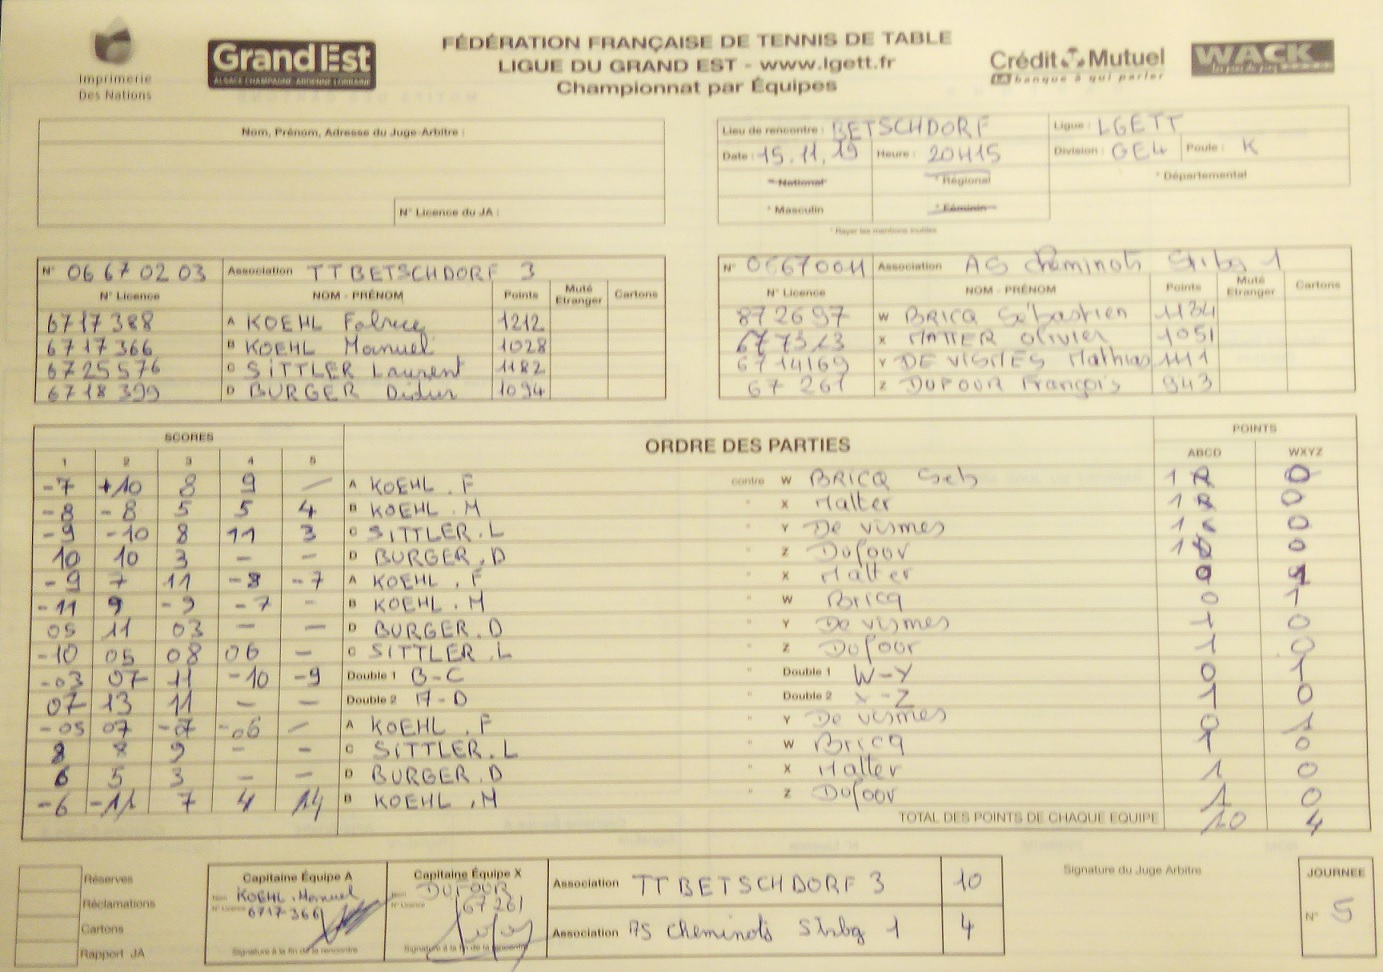 Imprimerie
Des Nations
GrandEst
ALSACE CHAMPAGNE-ARDENNE LORRAINE
FÉDÉRATION FRANÇAISE DE TENNIS DE TABLE
LIGUE DU GRAND EST - www.lgett.fr
Championnat par Équipes
Crédit Mutuel
LA banque à qui parler
WACK
Nom, Prénom, Adresse du Juge-Arbitre :
N° Licence du JA :
Lieu de rencontre : BETSCHDORF Ligue : LGETT
Date : 15.11.19 Heure : 20H15 Division : GE4 Poule : K
* National * Régional * Départemental
* Masculin * Féminin
* Rayer les mentions inutiles
N° 06 67 02 03 Association TT BETSCHDORF 3
N° Licence NOM - PRÉNOM Points Muté Etranger Cartons
6717388 A KOEHL Fabrice 1212
6717366 B KOEHL Manuel 1028
6725576 C SITTLER Laurent 1182
6718399 D BURGER Didier 1094
N° 06670011 Association AS Cheminots Strbg 1
N° Licence NOM - PRÉNOM Points Muté Etranger Cartons
872697 W BRICQ Sébastien 1134
X MATTER Olivier 1051
6714169 Y DE VISMES Mathias 1111
67 261 Z DUFOUR François 943
SCORES ORDRE DES PARTIES POINTS
1 2 3 4 5 ABCD WXYZ
-7 +10 8 9 — A KOEHL . F contre W BRICQ Seb 1 0
-8 -8 5 5 4 B KOEHL . M " X Matter 1 0
-9 -10 8 11 3 C SITTLER . L " Y De vismes 1 0
10 10 3 — — D BURGER . D " Z Dufour 1 0
-9 7 11 -8 -7 A KOEHL . F " X Matter 0 1
-11 9 -9 -7 - B KOEHL . M " W Bricq 0 1
05 11 03 — — D BURGER . D " Y De vismes 1 0
-10 05 08 06 — C SITTLER . L " Z Dufour 1 0
-03 07 11 -10 -9 Double 1 B-C " Double 1 W-Y 0 1
07 13 11 — — Double 2 A-D " Double 2 X-Z 1 0
-05 07 -07 -06 — A KOEHL . F " Y De vismes 0 1
8 8 9 - - C SITTLER . L " W Bricq 1 0
6 5 3 — — D BURGER . D " X Matter 1 0
-6 -11 7 4 14 B KOEHL . M " Z Dufour 1 0
TOTAL DES POINTS DE CHAQUE EQUIPE 10 4
Réserves
Réclamations
Cartons
Rapport JA
Capitaine Équipe A
Nom KOEHL Manuel
N° Licence 6717366
Signature à la fin de la rencontre
Capitaine Équipe X
Nom DUFOUR
N° Licence 67 261
Signature à la fin de la rencontre
Association TT BETSCHDORF 3 10
Association AS Cheminots Strbg 1 4
Signature du Juge Arbitre
JOURNEE
N° 5